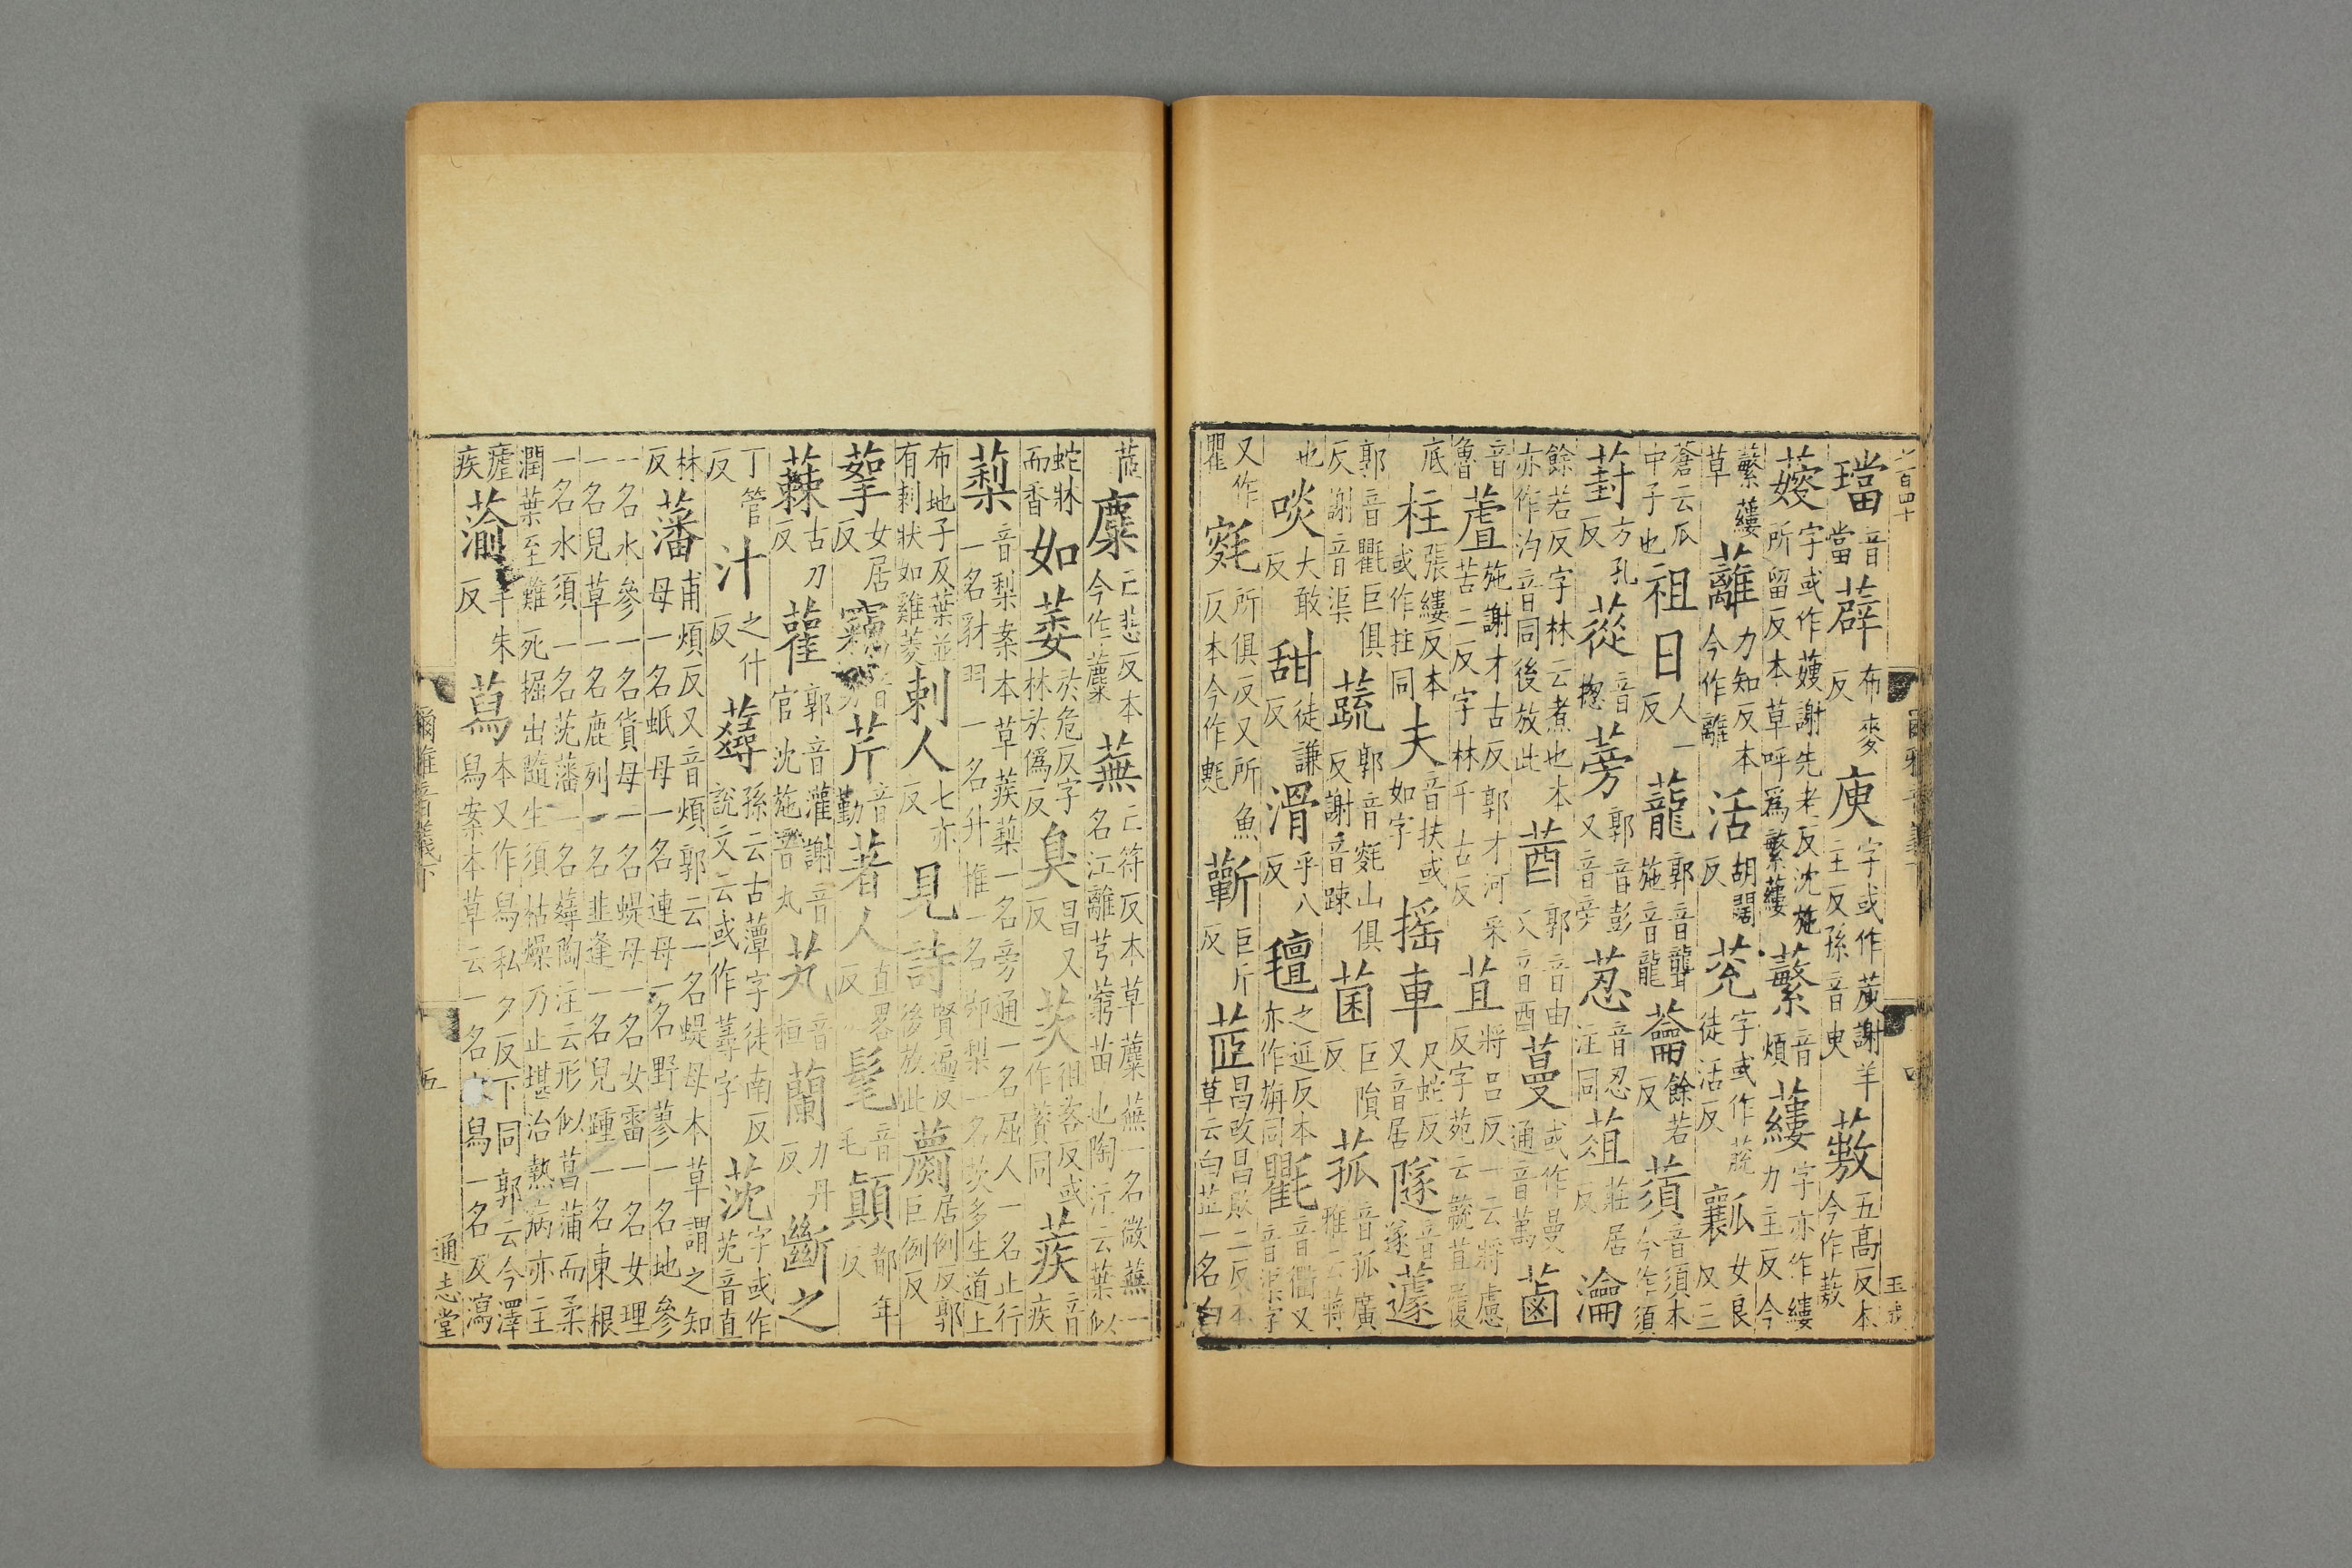 璫音當薜布麥反庾字或作𦸅謝羊主反孫音臾䕮五高反本今作䔢
蔜字或作𦺬謝先老反沈施所留反本草呼爲蘩蔞蘩音煩蔞字亦作縷力主反今
草蘩蔞蘺力知反本今作離活胡闊反莌字或作蒄徒活反瓤女良反三
蒼云瓜中子也祖日人一反蘢郭音聾施音龍蘥餘若反須音須本今作須
葑方孔反蓯音揔蒡郭音彭又音旁荵音忍注同菹莊居反瀹
餘若反字林云煮也本亦作汋音同後放此莤郭音由又音酉蔓或作曼通音萬菡
音魯蔖施謝才古反郭才河采苦二反字林千古反苴將呂反一云將慮反字苑云䖇苴履
底柱張縷反本或作拄同夫音扶或如字摇車尺蛇反又音居隧音遂蘧
郭音氍巨俱反謝音渠蔬郭音㲣山俱反謝音疎菌巨隕反菰音孤廣雅云蔣
也啖大敢反甜徒謙反滑乎八反氊之延反本亦作旃同氍音衢又音渠字
又作㲘㲣所俱反又所魚反本今作㲣蘄巨斤反茝昌改昌敗二反本草云白茝一名白
茝麋亡悲反本今作蘪蕪亡符反本草蘼蕪一名薇蕪一名江離芎藭苗也陶注云葉似
蛇牀而香如萎於危反字林於僞反臭昌又反茨徂咨反或作薋同蒺音疾
蔾音梨案本草蒺蔾一名旁通一名屈人一名止行一名豺羽一名升推一名卽梨一名茨多生道上
布地子及葉並有刺狀如雞菱刺人七亦反見詩賢遍反後放此藅居例反郭巨例反
蒘女居反竊音芹音勤著人直畧反髦音毛顛都年反
蕀古刀反雚郭音灌謝音官沈施音丸芄音桓蘭力丹反斷之
丁管反汁之什反蕁孫云古藫字徒南反說文云或作蕁字莐字或作𦬼音直
林反藩甫煩反又音煩郭云一名蝭母本草謂之知母一名蚔母一名連母一名野蓼一名地參
一名水參一名貨母一名蝭母一名女雷一名女理一名兒草一名鹿列一名韭逢一名兒踵一名東根
一名水須一名莐藩一名蕁陶注云形似菖蒲而柔潤葉至難死掘出隨生須枯燥乃止堪治熱病亦主
瘧疾蕍羊朱反蕮本又作舄私夕反下同郭云今澤舄案本草云一名水舄一名及瀉
爾雅音義下
五
通志堂